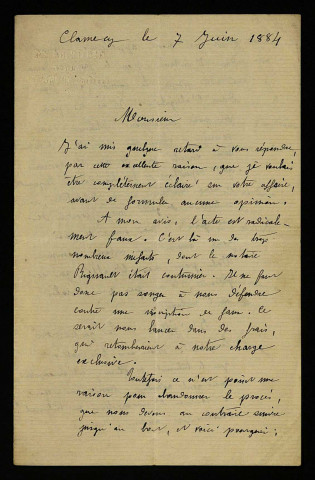 Clamecy le 7 Juin 1884
Monsieur
J'ai mis quelque retard à vous répondre,
par cette excellente raison, que je voulais
être complètement éclairé sur votre affaire,
avant de formuler aucune opinion.
A mon avis, l'acte est radicale-
ment faux. C'est là un des trop
nombreux méfaits, dont le notaire
était coutumier. Il ne faut
donc pas songer à nous défendre
contre une inscription de faux. Ce
serait nous lancer dans des frais,
qui retomberaient à notre charge
exclusive.
Toutefois ce n'est point une
raison pour abandonner le procès,
que nous devons au contraire suivre
jusqu'au bout, et voici pourquoi :